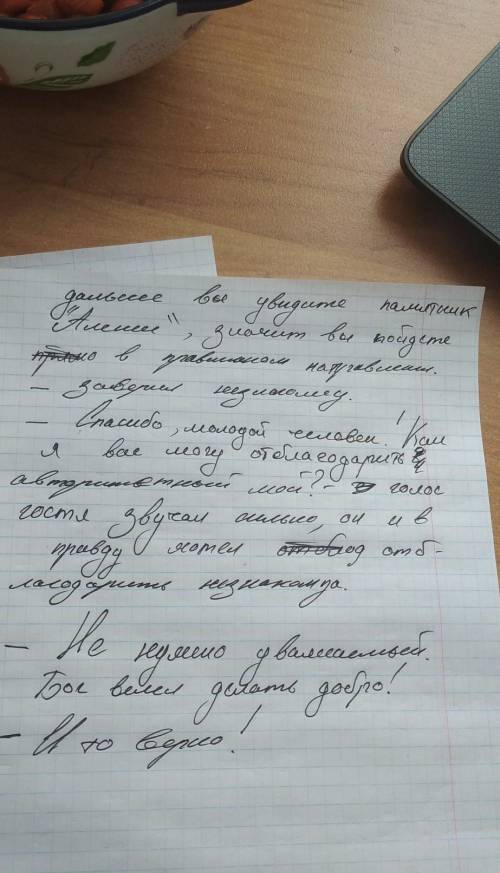 дальше вы увидите памятник
"Алеше", значит вы пойдете
в правильном направлении.
– заверил
– Спасибо, молодой человек! Как
я вас могу отблагодарить
мой? - голос
гостя звучал сильно, он и в
правду хотел отб-
лагодарить незнакомца.
– Не нужно уважаемый.
Бог велел делать добро!
– И то верно!